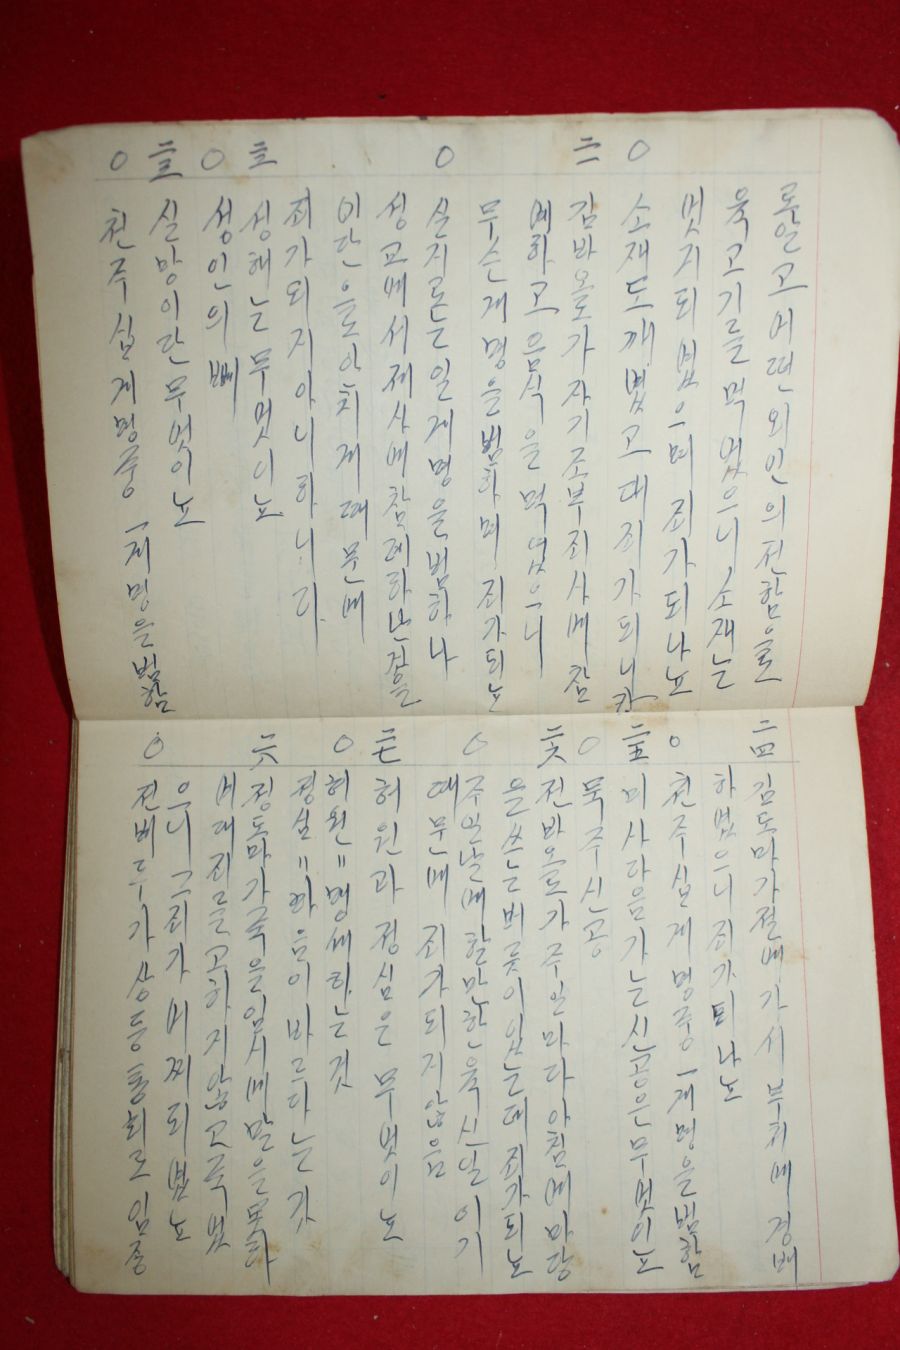 론알고 어떤 외인의 전함으로
육고기를 먹엇으니 소재는
벗지되엿으며 죄가되나뇨
○ 소재도깨엿고 대죄가되니라
二一 김바오로가 자기조부 죄사에 참
예하고 음식을 먹엇으니
무슨게명을범하며 죄가되뇨
○ 실지로는 일게명을 범하나
성교에서 제사에 참례하난것을
이단으로 아치게때문에
죄가되지아니하니라
二二 성해는 무엇이뇨
○ 성인의 뼈
二三 실망이란 무엇이뇨
○ 천주십게명중 一게명을범함
二四 김도마가절에가서 부처에 경배
하엿으니 죄가되나뇨
○ 천주십게명중 一게명을범함
二五 미사다음가는신공은무엇이뇨
○ 묵주신공
二六 전바오로가 주일마다 아침에마당
을쓰는버릇이잇는데 죄가되뇨
○ 주일날에할만한육신일이기
때문에 죄가되지않음
二七 허원과 정심은 무엇이뇨
○ 허원=맹세하는것
정심=마음이바르다는것
二八 정도마가죽을임시에말을못하
여대죄를고하지않고죽엇
으니 그죄가 어찌되엿뇨
○ 전에두가상등통회로임종